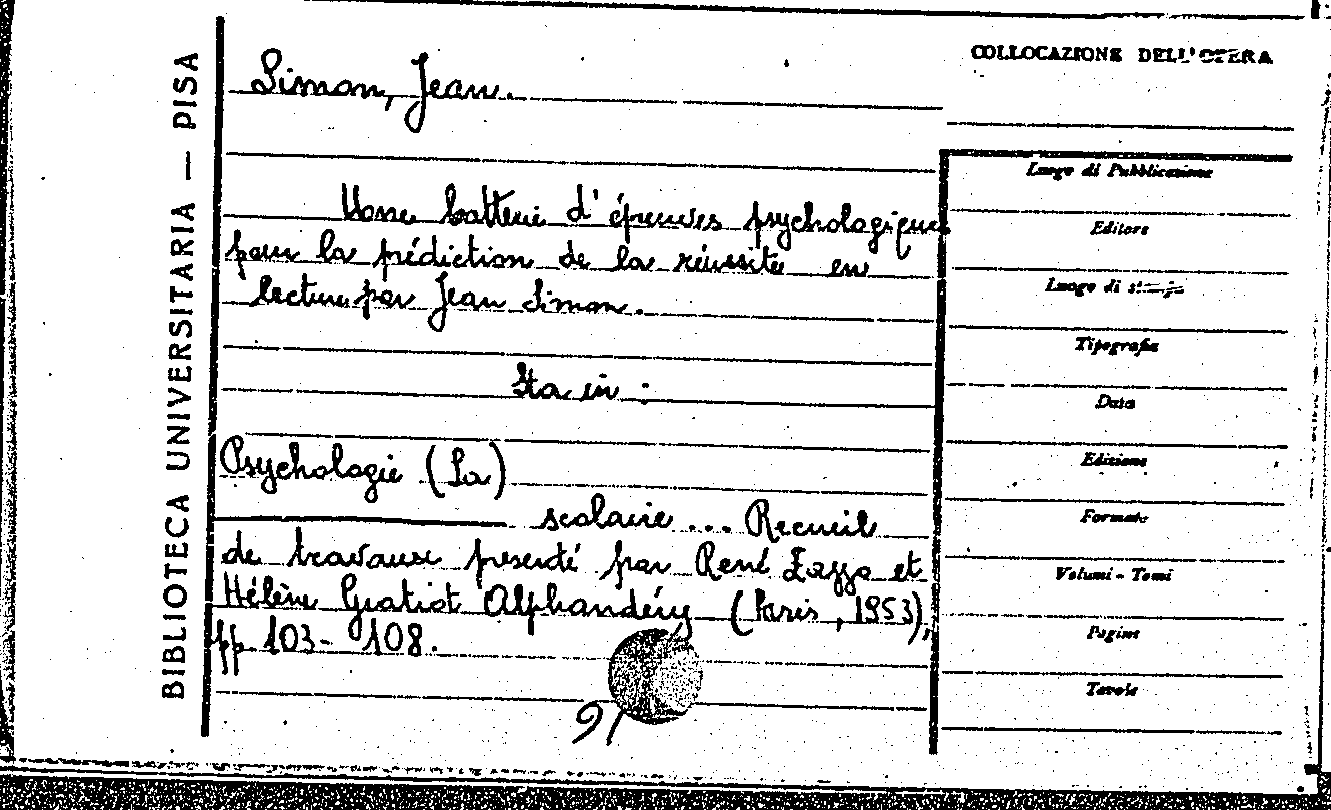 BIBLIOTECA UNIVERSITARIA — PISA
Simon, Jean.
Une batterie d'épreuves psychologiques
pour la prédiction de la réussite en
lecture par Jean Simon.
Sta in :
Psychologie (La)
scolaire ... Recueil
de travaux presenté par René Zazzo et
Hélène Gratiot Alphandéry (Paris, 1953),
pp 103- 108.
91
COLLOCAZIONE DELL'OPERA
Luogo di Pubblicazione
Editore
Luogo di stampa
Tipografia
Data
Edizione
Formato
Volumi - Tomi
Pagine
Tavole